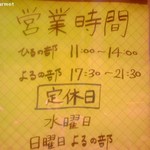 営業時間
ひるの部 11:00~14:00
よるの部 17:30~21:30
定休日
水曜日
日曜日よるの部